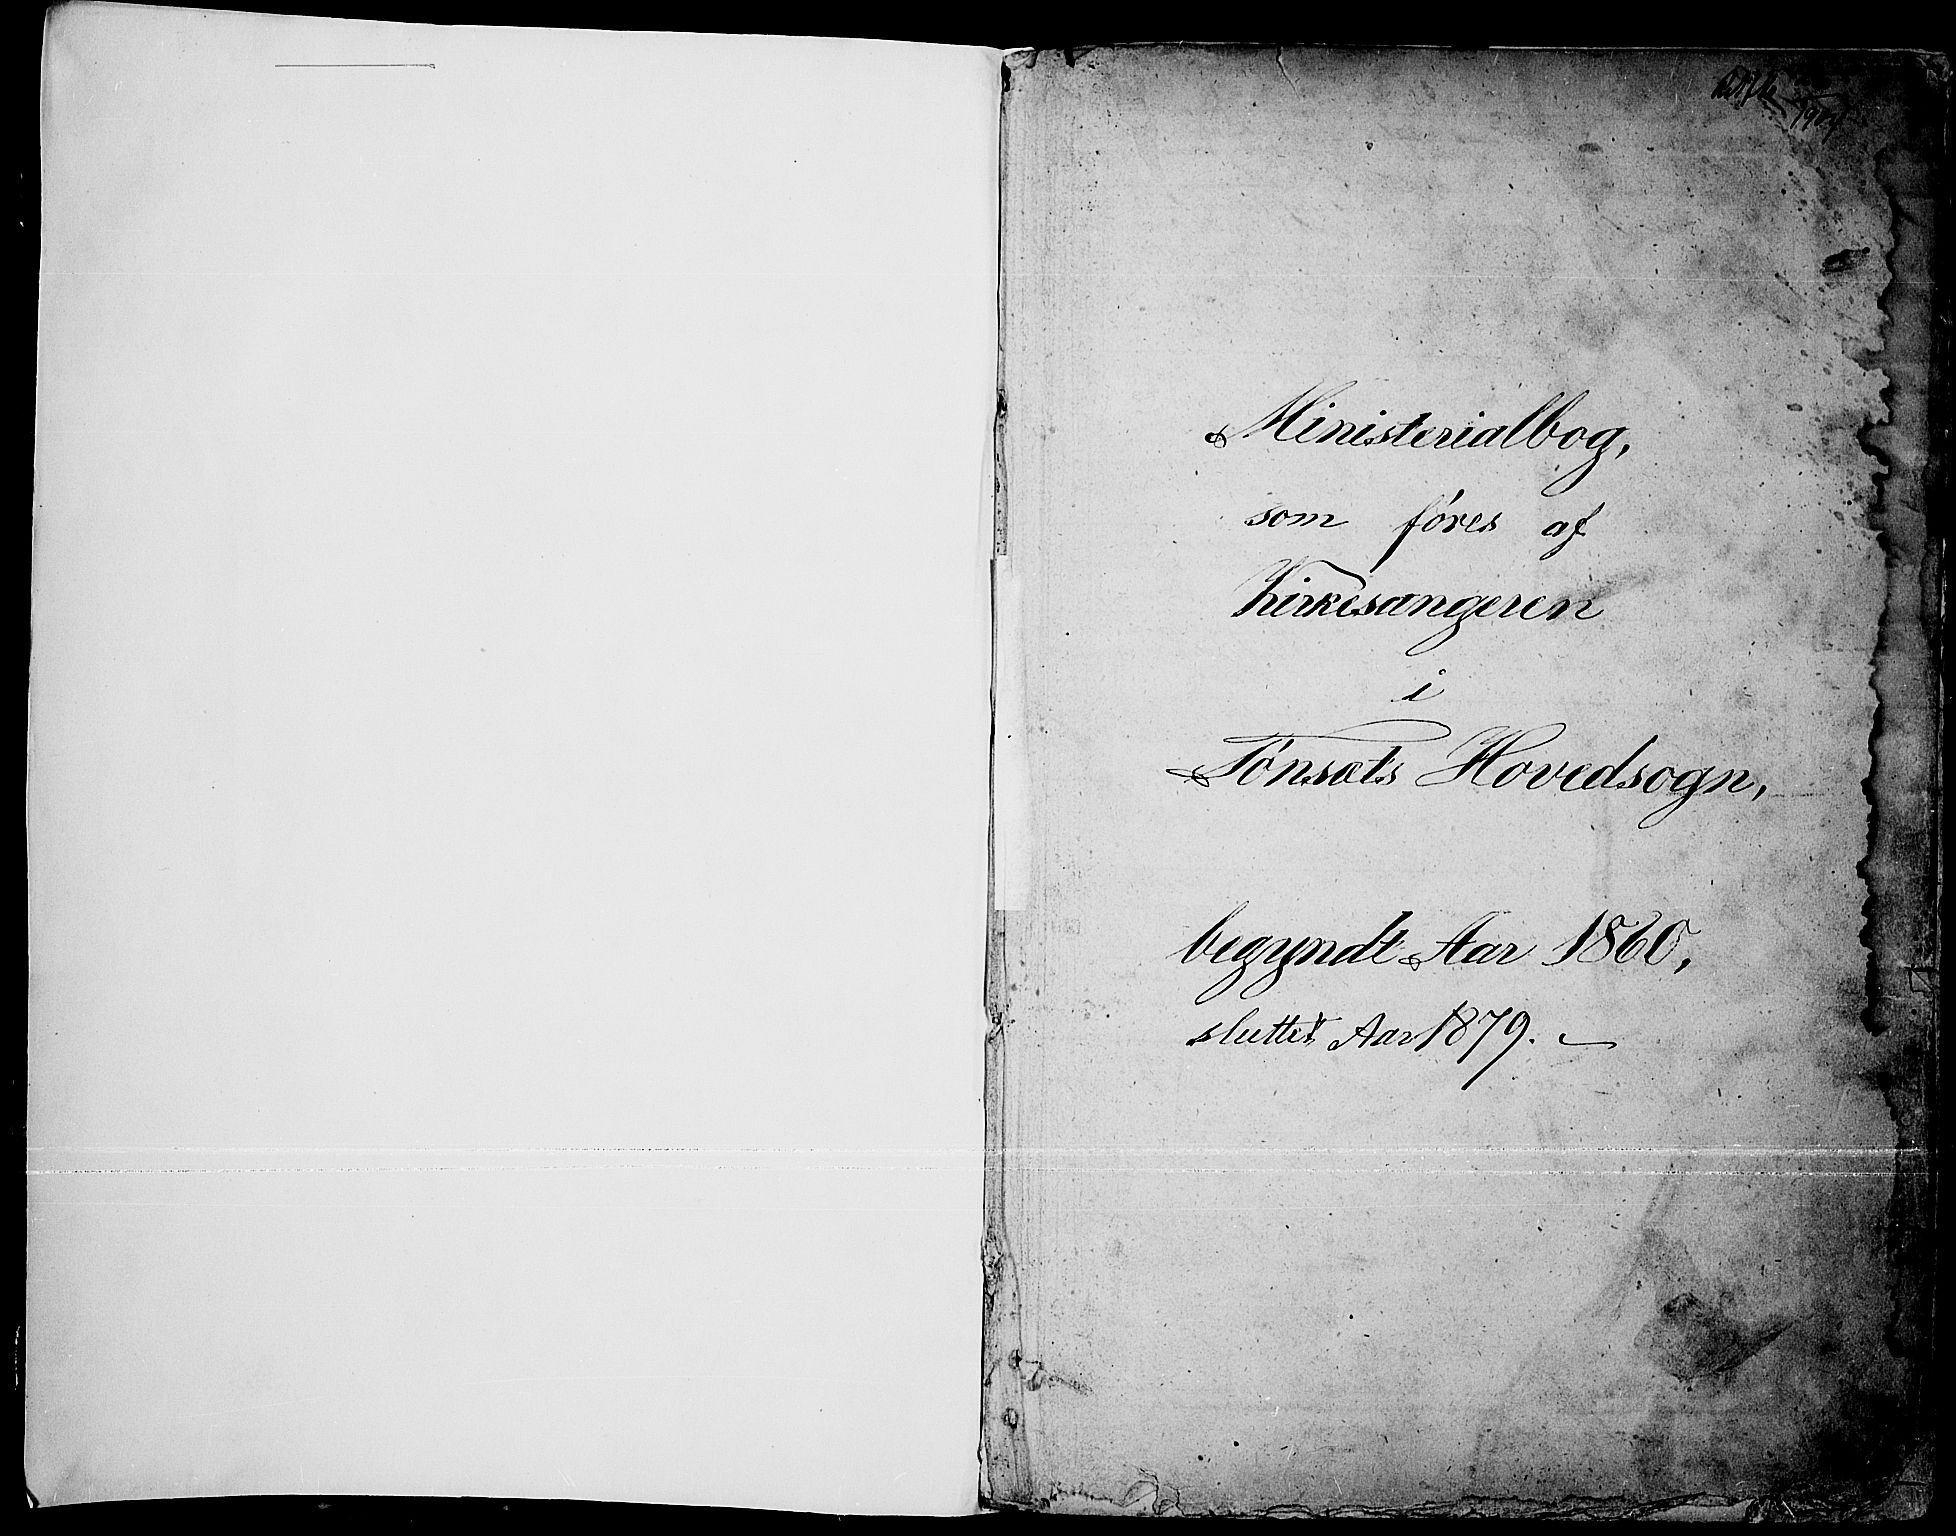 Ministerialbog,
som føres af
Kirkesangeren
i
Tønsæts Hovedsogn,
begyndt Aar 1860,
sluttet Aar 1879.